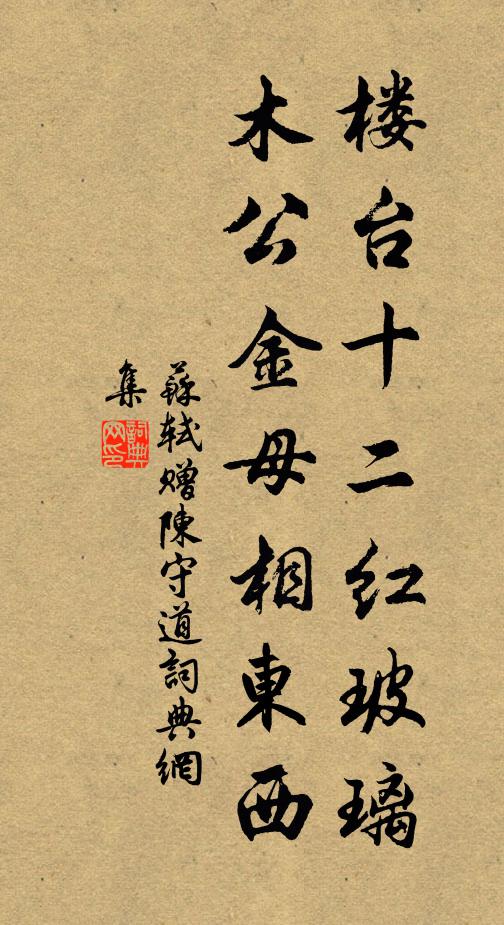 楼台十二红玻璃
木公金母相東西
蘇軾赠陳守道詞典網
集
詞典
网印